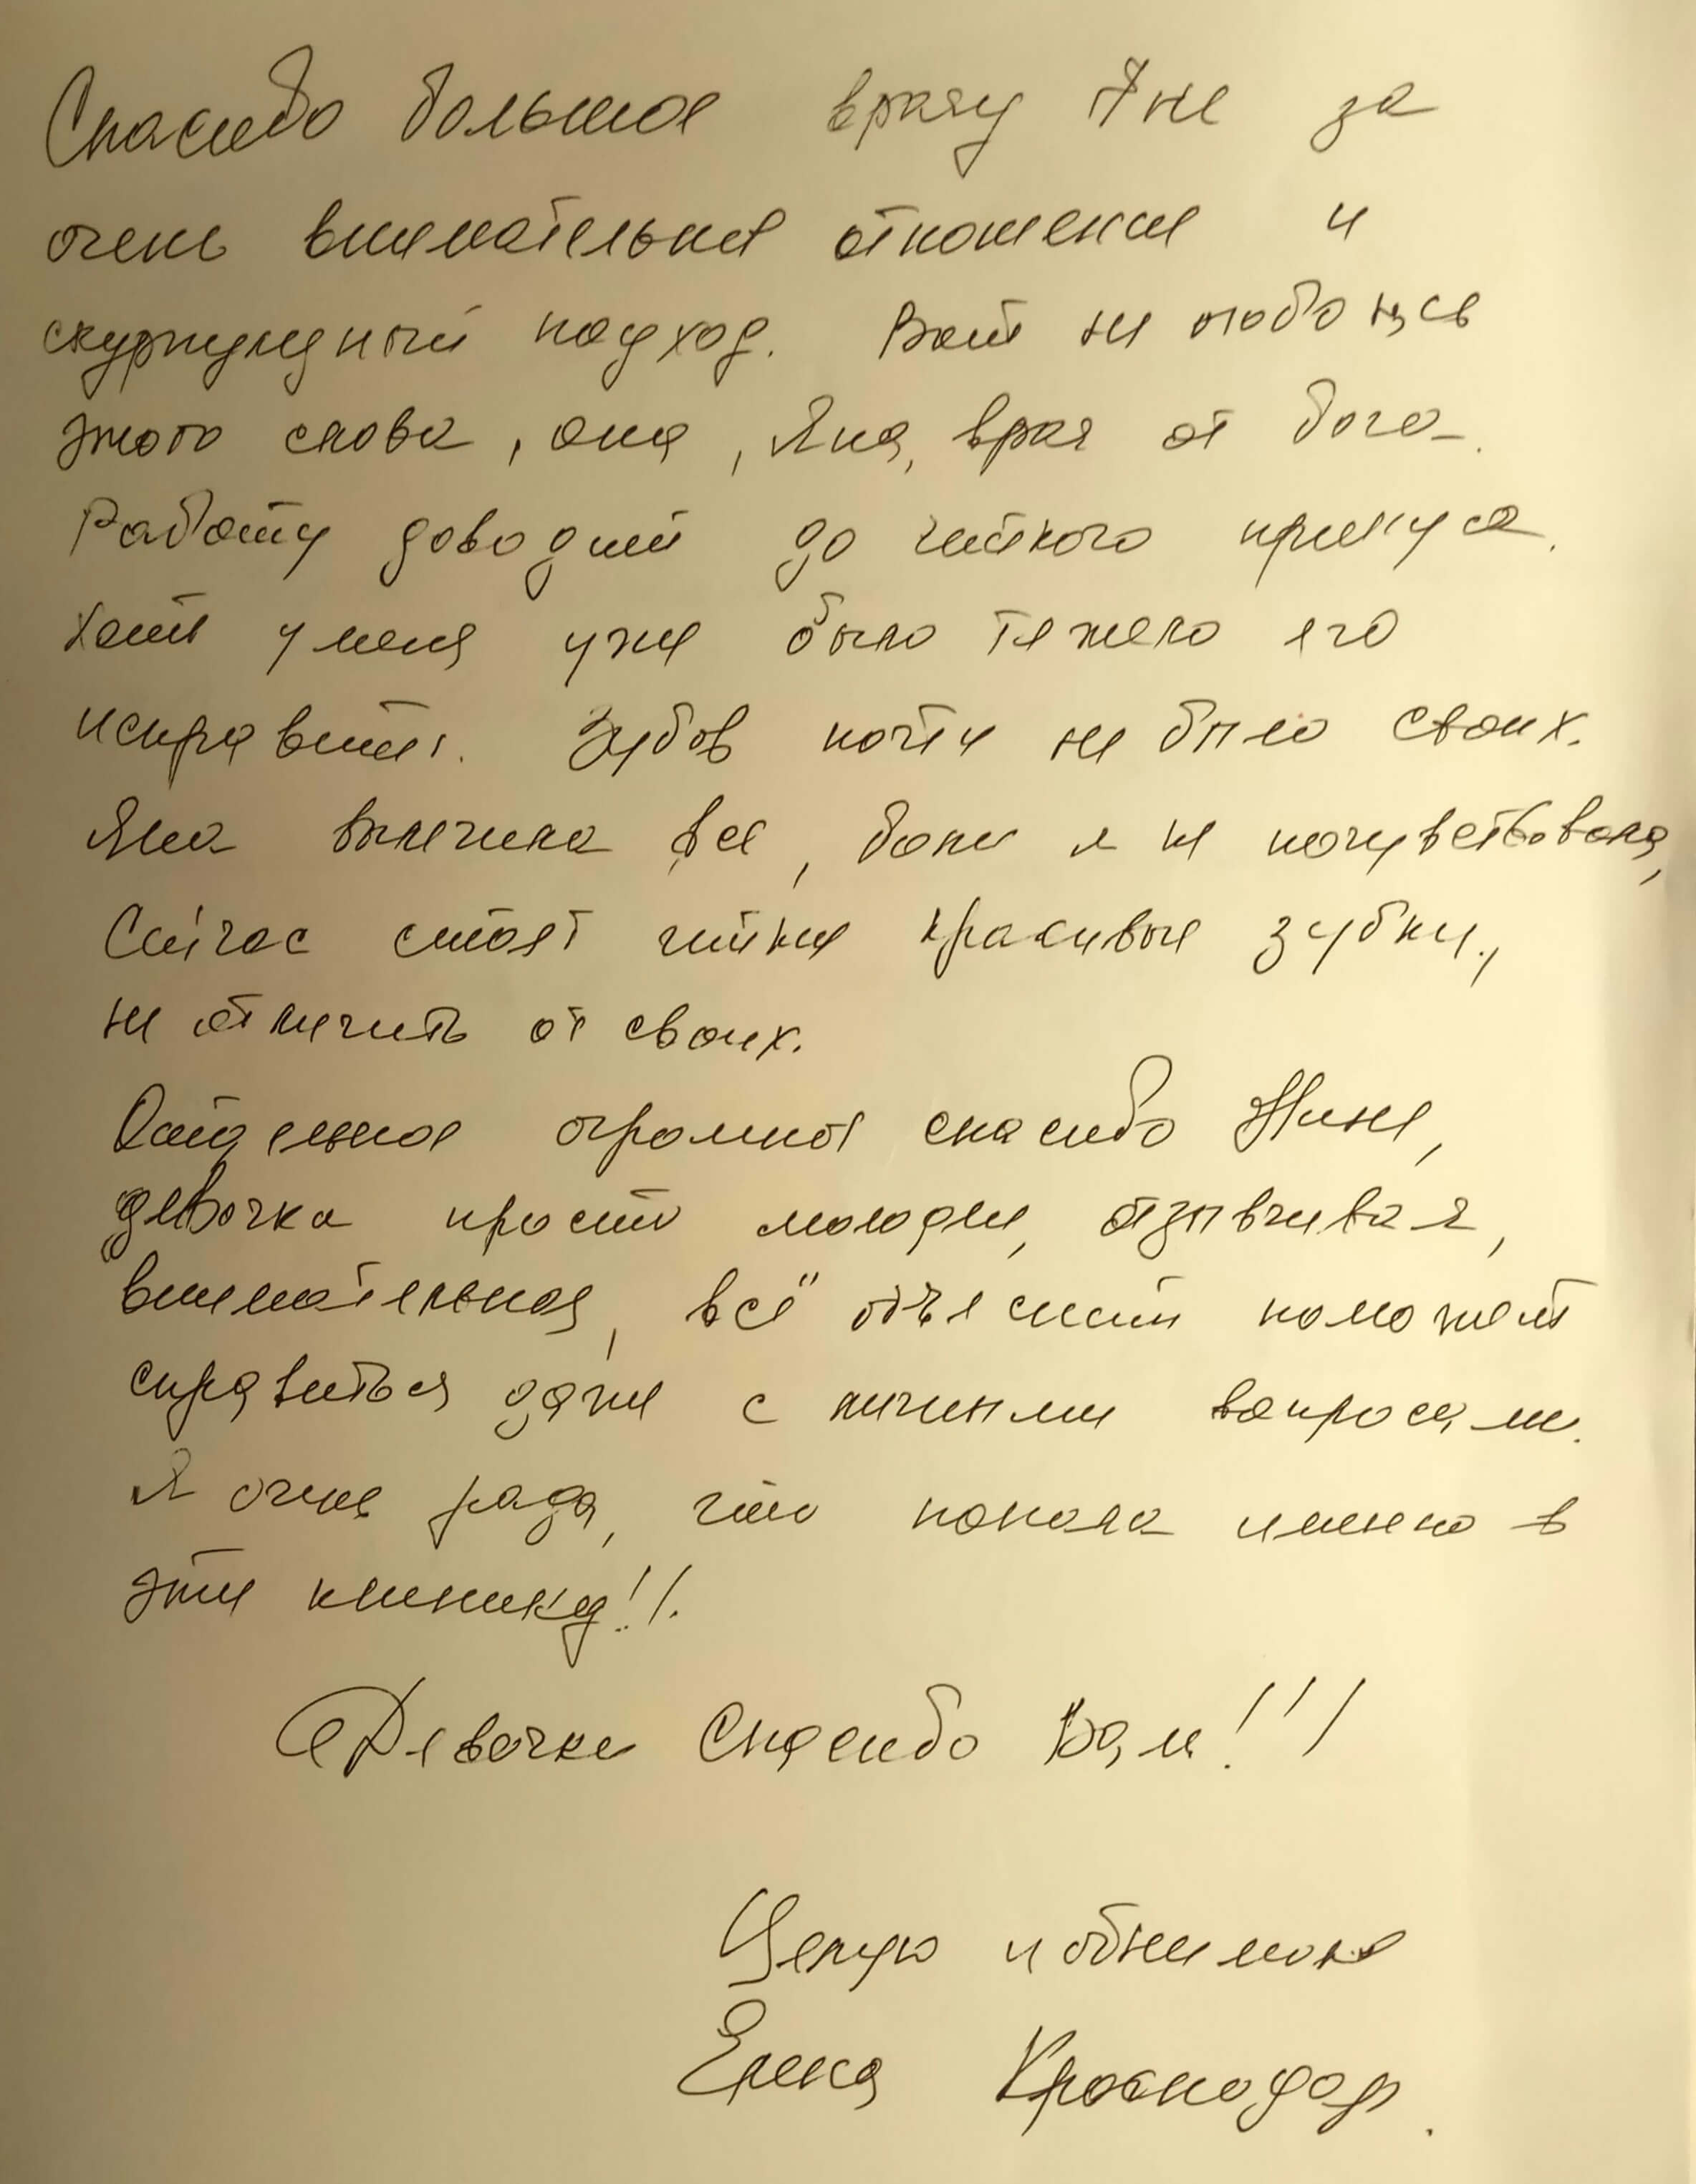 Спасибо большое врачу Яне за
очень внимательное отношение и
скурпулезный подход. Вот не побоюсь
этого слова, она, Яна, врач от бога.
Работу доводит до чёткого прикуса.
Хоть у меня уже было тяжело его
исправить. Зубов почти не было своих.
Яна вылечила все, боли я не почувствовала,
Сейчас стоят чёткие красивые зубки,
не отличить от своих.
Отдельное огромное спасибо Жине,
девочка просто молодец, отзывчивая,
внимательная, всё объяснит поможет
справиться даже с личными вопросами.
Я очень рада, что попала именно в
эту клинику!!
Девочки Спасибо Вам!!!
Целую и обнимаю
Елена Краснодар.